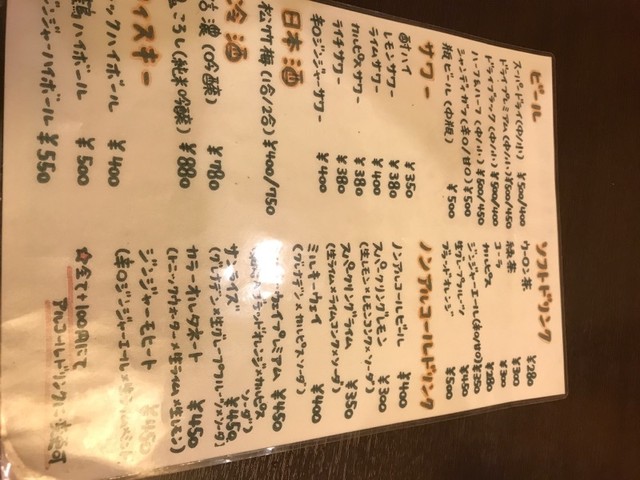 ビール
スーパードライ(中/小) ¥500/400
ドライプレミアム(中/小) ¥500/450
ドライブラック(中/小) ¥500/400
ハーフ&ハーフ(中/小) ¥500/450
シャンディガフ(辛口/甘口) ¥500
瓶ビール(中瓶) ¥500
サワー
酎ハイ ¥350
レモンサワー ¥380
ライムサワー ¥400
カルピスサワー ¥380
ライチサワー ¥380
辛口ジンジャーサワー ¥400
日本酒
松竹梅(1合/2合) ¥400/750
冷酒
(吟醸) ¥780
ころし(純米吟醸) ¥880
イスキー
ックハイボール ¥400
ハイボール ¥500
ンジャーハイボール ¥550
ソフトドリンク
ウーロン茶 ¥280
緑茶 ¥300
コーラ ¥300
カルピス ¥280
ジンジャーエール(辛口/甘口) ¥350
生グレープフルーツ ¥450
ブラッドオレンジ ¥500
ノンアルコールドリンク
ノンアルコールビール ¥400
スパークリングレモン ¥300
(生レモン×レモンコンク×ソーダ)
スパークリングライム ¥350
(生ライム×ライムコンク×ソーダ)
ミルキーウェイ ¥400
(グレナデン×カルピス×ソーダ)
ウェイプレミアム ¥450
ブラッドオレンジ×カルピス×ソーダ)
サンライズ ¥450
(グレナデン×生グレープフルーツ×ソーダ)
カラーオルタネート ¥450
(トニックウォーター×生ライム×生レモン)
ジンジャーモヒート ¥450
(辛口ジンジャーエール×
☆全て+100円にて
アルコールドリンクに